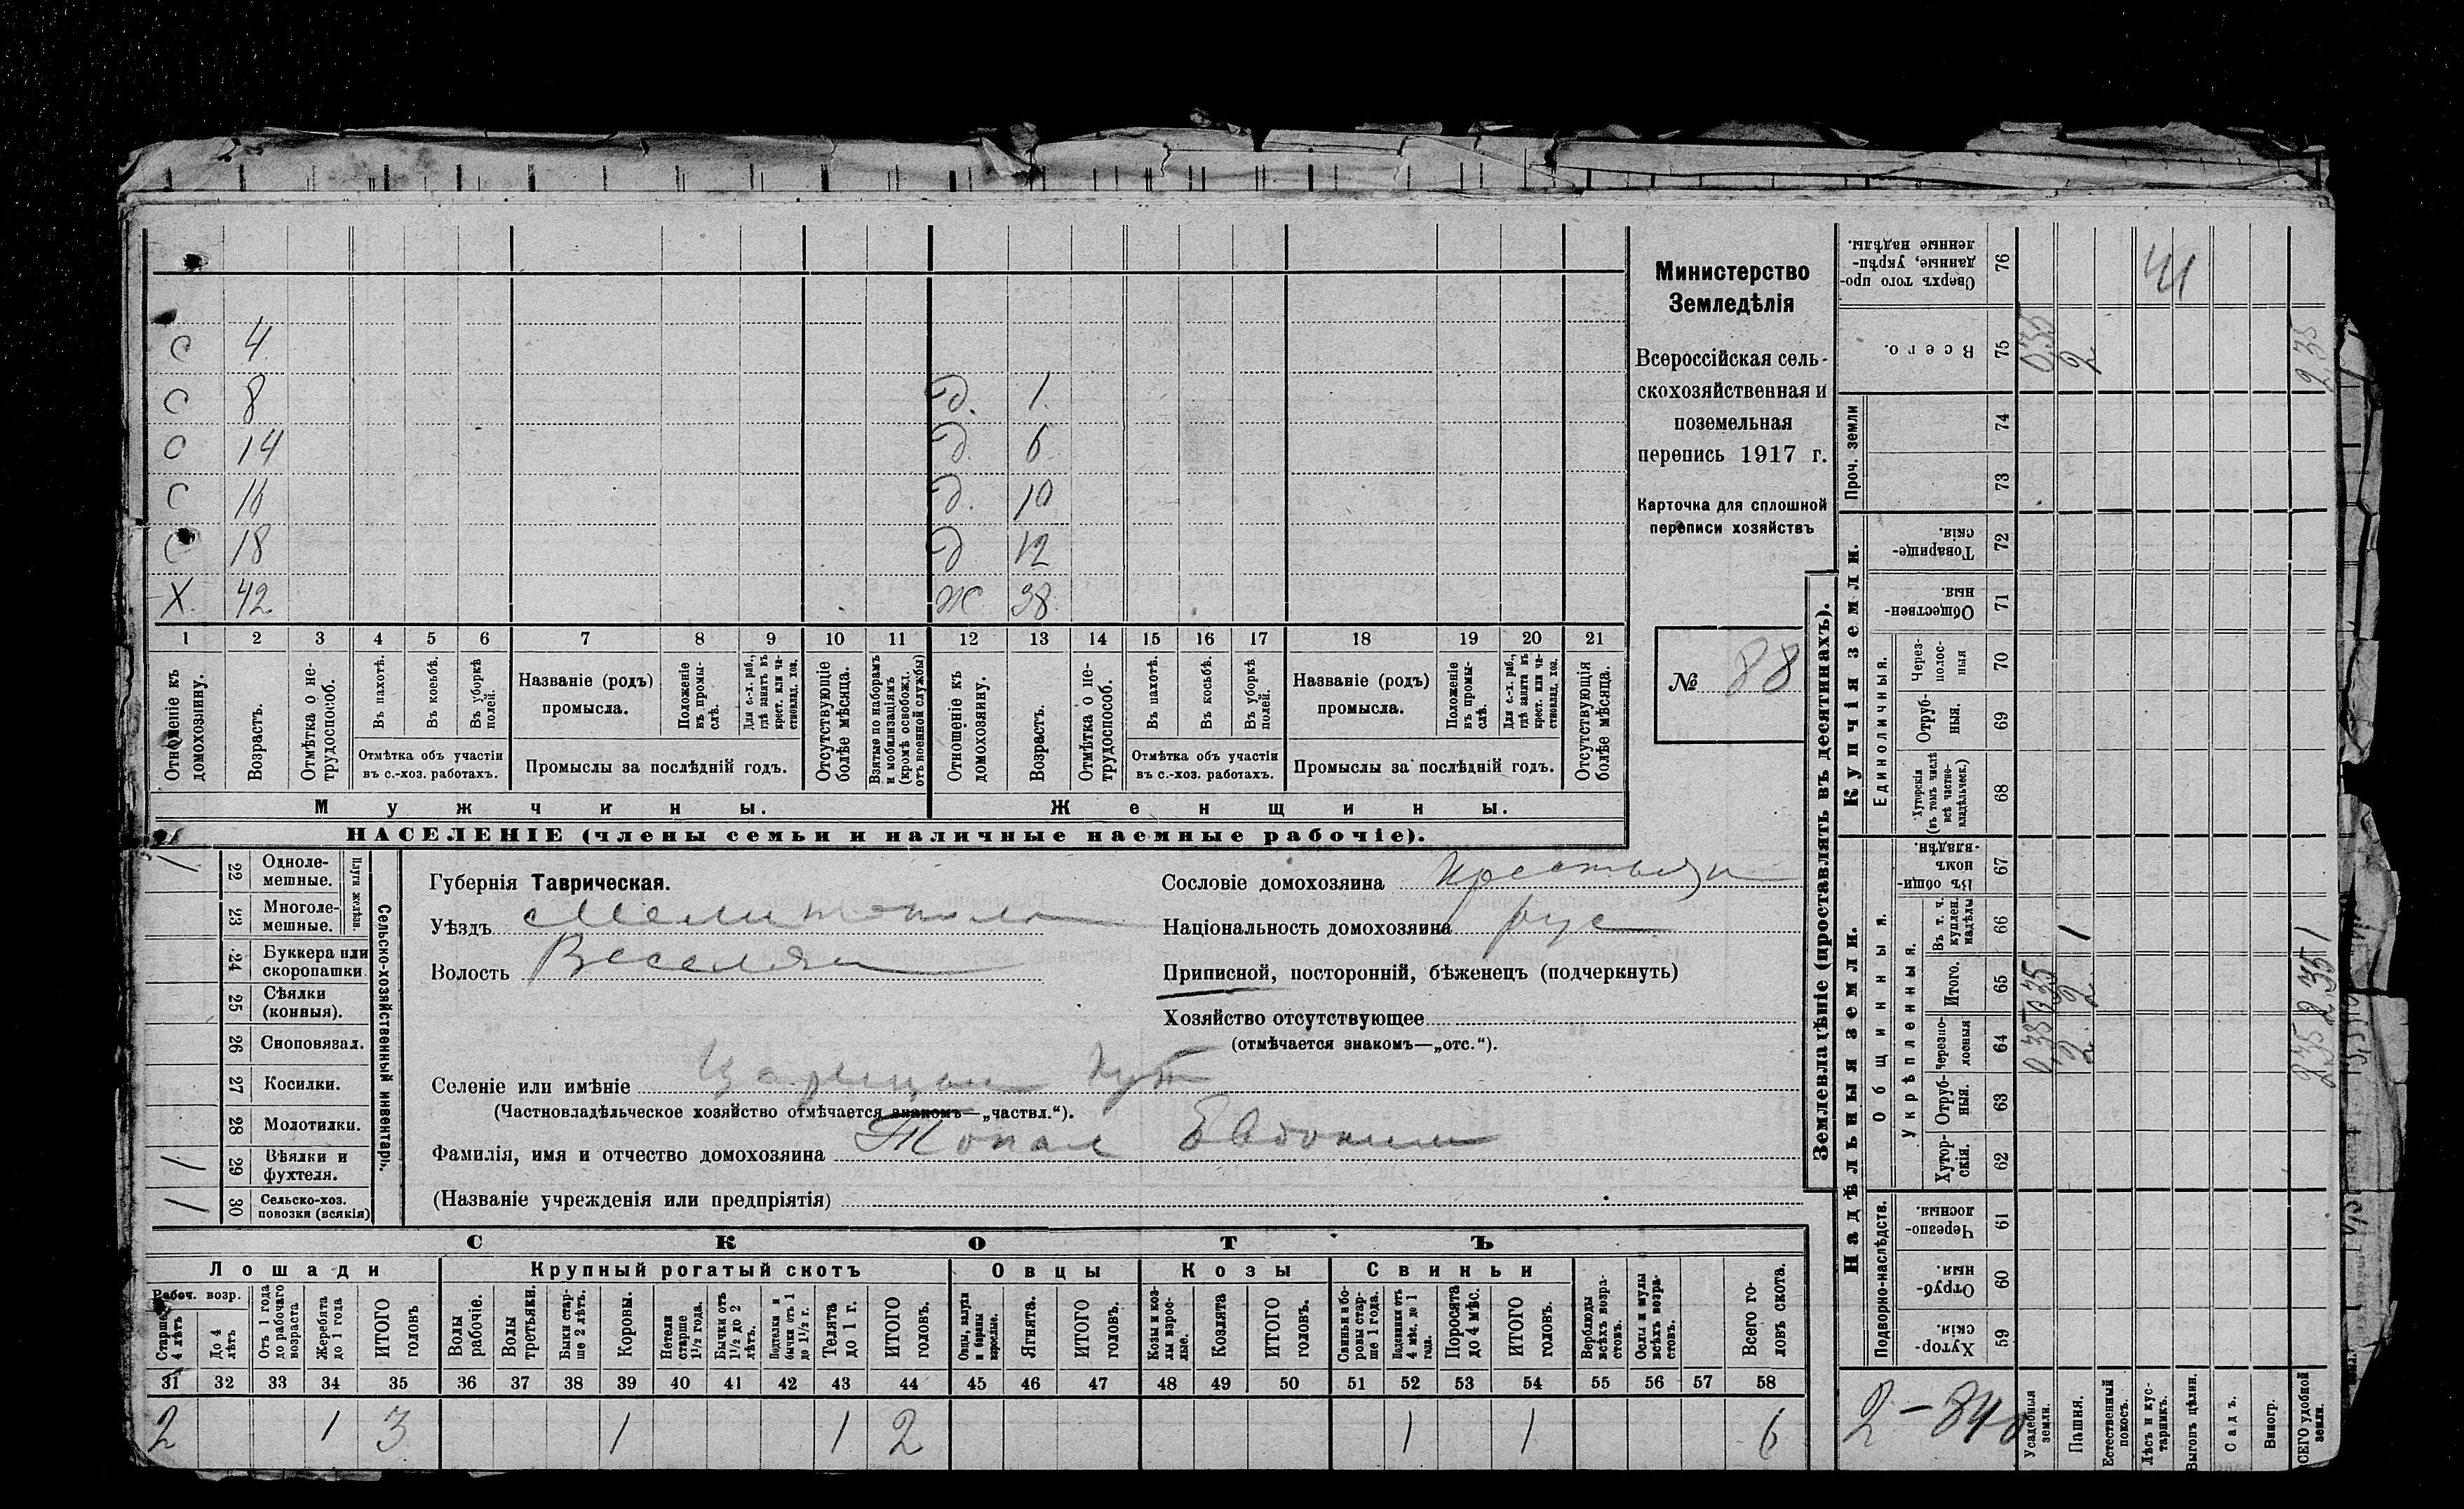 С 4
С 8 д. 1
С 14 д. 6
С 16 д. 10
С 18 д 12
Х. 42 ж 38
1 2 3 4 5 6 7 8 9 10 11 12 13 14 15 16 17 18 19 20 21
Отношеніе къ домохозяину.
Возрастъ.
Отмѣтка о нетрудоспособ.
Въ пахотѣ.
Въ косьбѣ.
Въ уборкѣ полей.
Отмѣтка объ участіи
въ с.-хоз. работахъ.
Названіе (родъ)
промысла.
Положеніе въ промыслѣ.
Для с.-х. раб., гдѣ занятъ въ крест. или частновлад. хоз.
Промыслы за послѣдній годъ.
Отсутствующіе болѣе мѣсяца.
Взятые по наборамъ и мобилизаціямъ (кромѣ освобожд. отъ военной службы)
Отношеніе къ домохозяину.
Возрастъ.
Отмѣтка о нетрудоспособ.
Въ пахотѣ.
Въ косьбѣ.
Въ уборкѣ полей.
Отмѣтка объ участіи
въ с.-хоз. работахъ.
Названіе (родъ)
промысла.
Положеніе въ промыслѣ.
Для с.-х. раб., гдѣ занята въ крест. или частновлад. хоз.
Промыслы за послѣдній годъ.
Отсутствующія болѣе мѣсяца.
Мужчины. Женщины.
НАСЕЛЕНІЕ (члены семьи и наличные наемные рабочіе).
Министерство
Земледѣлія
Всероссійская сель-
скохозяйственная и
поземельная
перепись 1917 г.
Карточка для сплошной
переписи хозяйствъ
№ 88
1 22 Однолемешные.
23 Многолемешные.
Плуги желѣзн.
24 Буккера или скоропашки
25 Сѣялки (конныя).
26 Сноповязал.
27 Косилки.
28 Молотилки.
1 29 Вѣялки и фухтеля.
1 30 Сельско-хоз. повозки (всякія)
Сельско-хозяйственный инвентарь.
Губернія Таврическая.
Уѣздъ Мелитополь
Волость Веселян
Сословіе домохозяина крестьян
Національность домохозяина рус
Приписной, посторонній, бѣженецъ (подчеркнуть)
Хозяйство отсутствующее
(отмѣчается знакомъ—„отс.“).
Селеніе или имѣніе Царицын Кут
(Частновладѣльческое хозяйство отмѣчается знакомъ—„частвл.“).
Фамилія, имя и отчество домохозяина Топал Евдоким
(Названіе учрежденія или предпріятія)
СКОТЪ
Лошади Крупный рогатый скотъ Овцы Козы Свиньи
Рабоч. возр.
Старше 4 лѣтъ
До 4 лѣтъ
Отъ 1 года до рабочаго возраста
Жеребята до 1 года
ИТОГО головъ
Волы рабочіе.
Волы третьяки.
Быки старше 2 лѣтъ.
Коровы.
Нетели старше 1½ года.
Бычки отъ 1½ до 2 лѣтъ.
Подтелки и бычки отъ 1 до 1½ г.
Телята до 1 г.
ИТОГО головъ.
Овцы, валухи и бараны взрослые.
Ягнята.
ИТОГО головъ.
Козы и козлы взрослые.
Козлята
ИТОГО головъ.
Свиньи и боровы старше 1 года.
Подсвинки отъ 4 мѣс. до 1 года.
Поросята до 4 мѣс.
ИТОГО головъ.
Верблюды всѣхъ возрастовъ.
Ослы и мулы всѣхъ возра-стовъ.
Всего головъ скота.
31 32 33 34 35 36 37 38 39 40 41 42 43 44 45 46 47 48 49 50 51 52 53 54 55 56 57 58
2 1 3 1 1 2 1 1 6
Землевладѣніе (проставлять въ десятинахъ).
Купчія земли.
Надѣльныя земли.
Сверхъ того проданные, укрѣпленные надѣлы. 76
Всего. 75 0,35 2 2 35
Проч. земли 74 73
Товарищескія. 72
Общественныя. 71
Единоличныя.
Черезполосныя 70
Отрубныя. 69
Хуторскія (въ томъ числѣ всѣ частновладѣльческ.) 68
Общинныя.
Въ общиномъ владѣн. 67
Укрѣпленныя.
Въ т. ч. куплен. надѣлы 66 1 1
Итого. 65 0,35 2 2 35
Черезполосныя 64 0,35 2 2 35
Отрубныя. 63
Хуторскія. 62
Подворно-наслѣдств.
Черезполосныя 61
Отрубныя. 60
Хуторскія. 59
2 — 840
Усадебныя земли.
Пашня.
Естественный покосъ.
Лѣсъ и кустарникъ.
Выгонъ цѣлин.
Садъ.
Виногр.
ВСЕГО удобной земли.